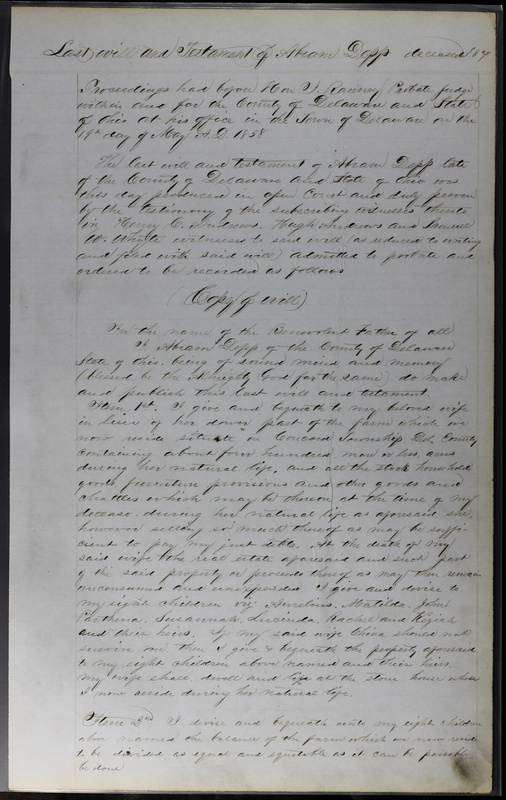 Last will and Testament of Abram Depp deceased 187
Proceedings had before Hon T. Ranney Probate Judge
within and for the County of Delaware and State
of Ohio at his office in the Town of Delaware on the
19th day of May A.D. 1858
The last will and testament of Abram Depp late
of the County of Delaware and State of Ohio was
this day produced in open Court and duly proven
by the testimony of the subscribing witnesses thereto
viz Henry C. Andrews, Hugh Andrews and
W. White witnesses to said will (as reduced to writing
and filed with said will) admitted to probate and
ordered to be recorded as follows
(Copy of will)
In the name of the Benevolent Father of all
I Abram Depp of the County of Delaware
State of Ohio, being of sound mind and memory
(blessed be the Almighty God for the same) do make
and publish this last will and testament.
Item 1st. I give and bequeath to my beloved wife
in lieu of her dower part of the farm which we
now reside situate in Concord Township Del. County
containing about four hundred more or less acres
during her natural life, and all the stock household
goods furniture provisions and other goods and
chattles which may be thereon at the time of my
decease, during her natural life as aforesaid she
however selling so much thereof as may be suffi-
cient to pay my just debts. At the death of my
said wife the real estate aforesaid and such part
of the said property or proceeds thereof as may then remain
unconsumed and unexpended I give and devise to
my eight children viz Aurelius, Matilda, John
Parthena, Susannah, Lucinda, Rachel and Keziah
and their heirs. If my said wife China should not
survive me then I give & bequeath the property aforesaid
to my eight children above named and their heirs.
my wife shall dwell and life at the stone house where
I now reside during her natural life.
Item I devise and bequeath unto my eight children
above named the balance of the farm which we now reside
to be divided as equal and equitable as it can be possible
be done